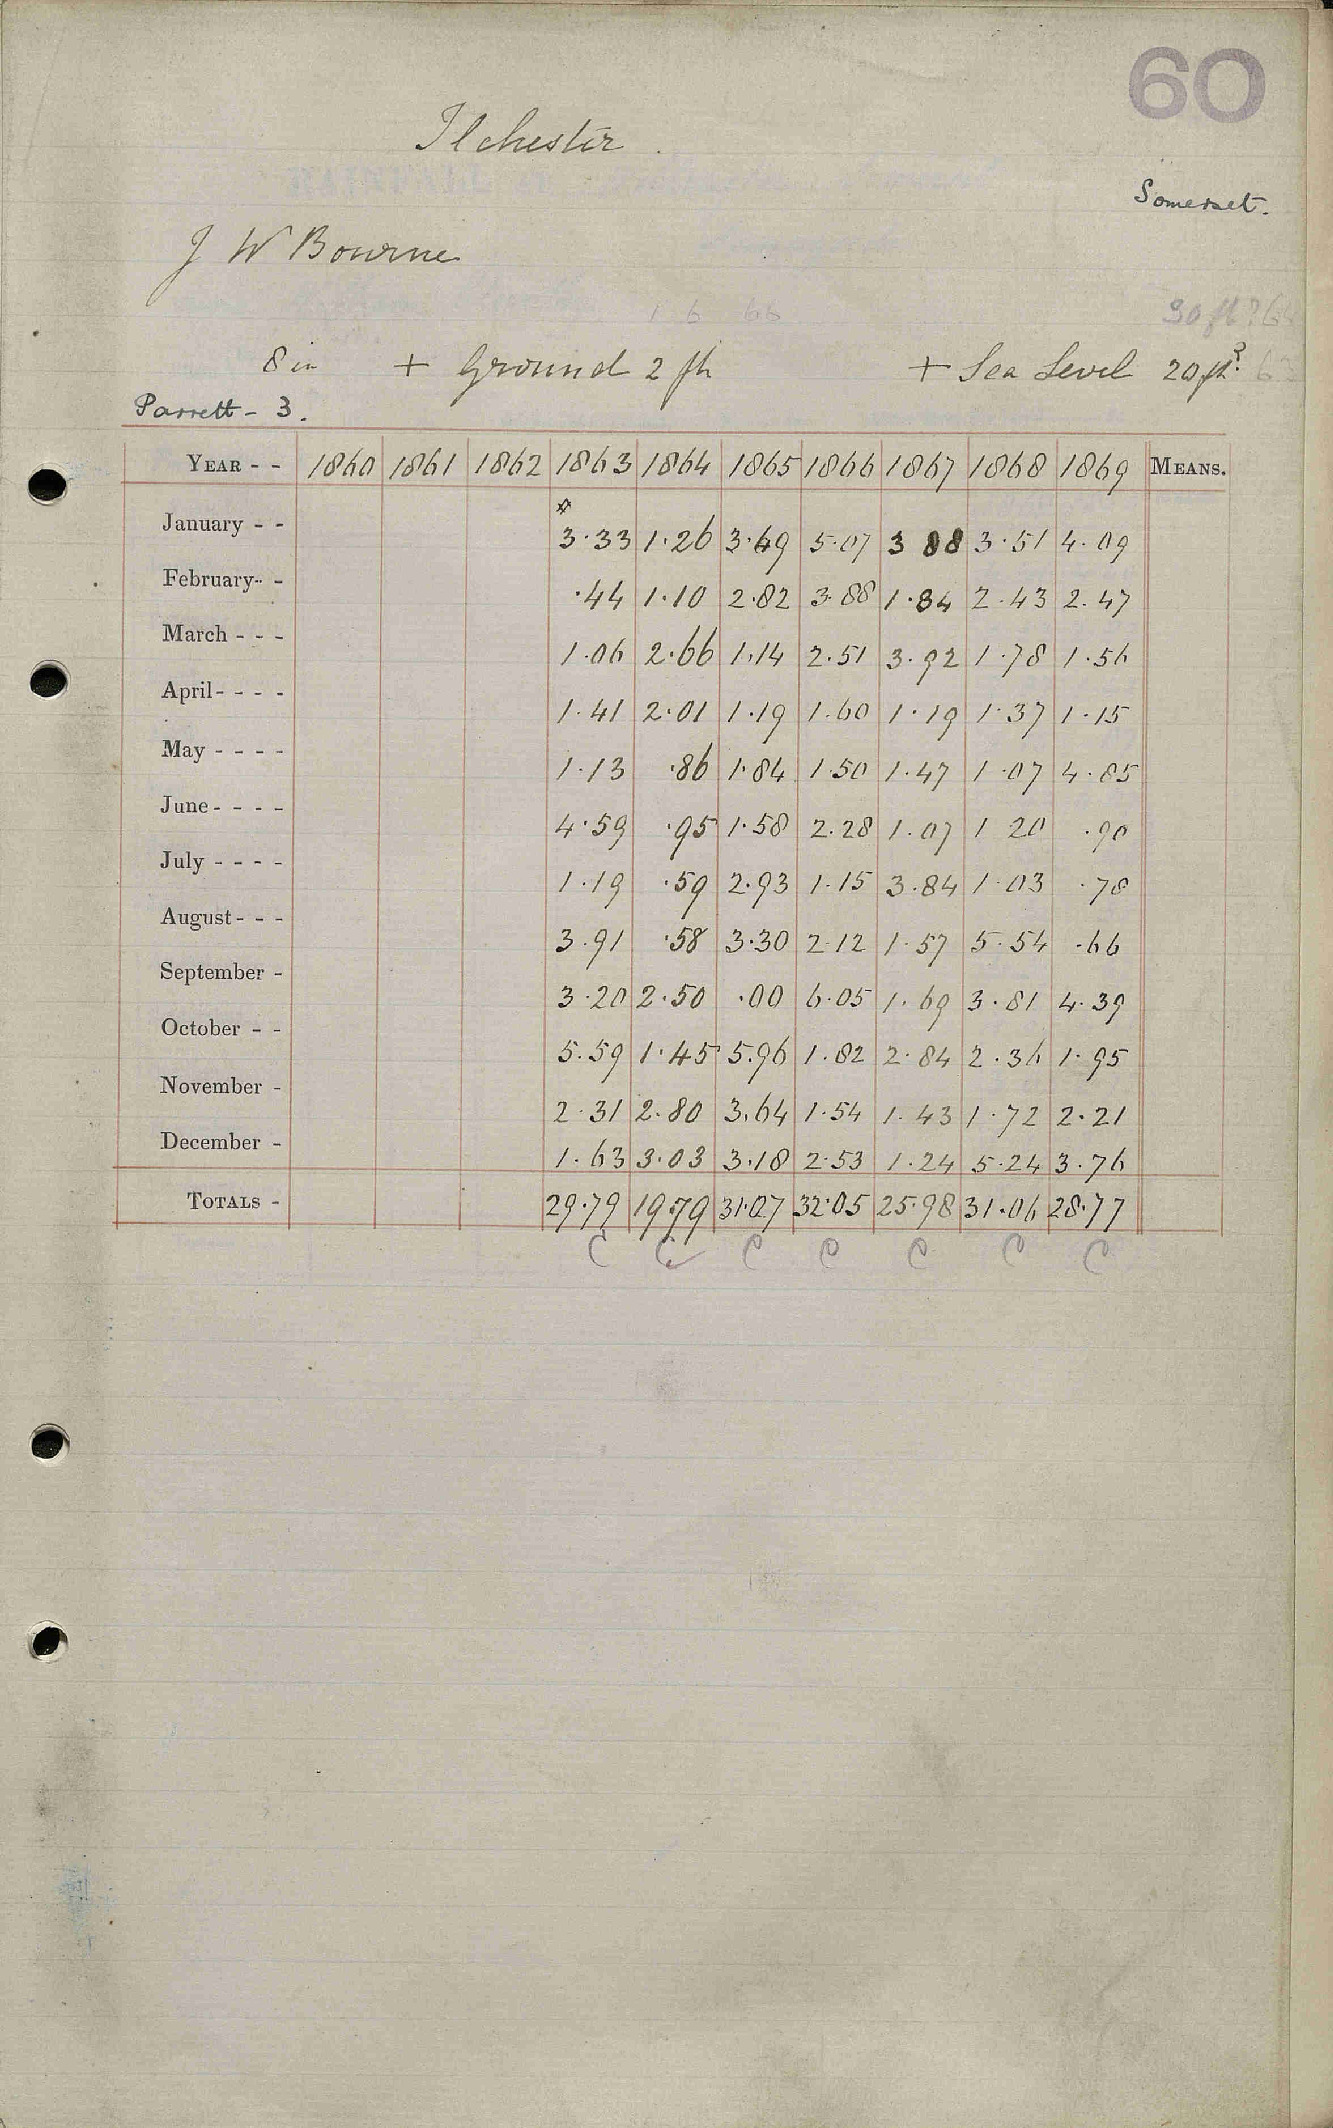 60
Ilchester
Somerset.
J W Bourne
8 in + Ground 2 ft + Sea Level 20 ft?
Parrett - 3.
YEAR - - 1860 1861 1862 1863 1864 1865 1866 1867 1868 1869 MEANS.
January - - 3.33 1.26 3.49 5.07 3 88 3.51 4.09
February - - .44 1.10 2.82 3.88 1.84 2.43 2.47
March - - - 1.06 2.66 1.14 2.51 3.92 1.78 1.56
April - - - - 1.41 2.01 1.19 1.60 1.19 1.37 1.15
May - - - - 1.13 .86 1.84 1.50 1.47 1.07 4.85
June - - - - 4.59 .95 1.58 2.28 1.07 1 20 .90
July - - - - 1.19 .59 2.93 1.15 3.84 1.03 .78
August - - - 3.91 .58 3.30 2.12 1.57 5.54 .66
September - 3.20 2.50 .00 6.05 1.69 3.81 4.39
October - - 5.59 1.45 5.96 1.82 2.84 2.36 1.95
November - 2.31 2.80 3.64 1.54 1.43 1.72 2.21
December - 1.63 3.03 3.18 2.53 1.24 5.24 3.76
TOTALS - 29.79 19.79 31.07 32.05 25.98 31.06 28.77
C C C C C C C